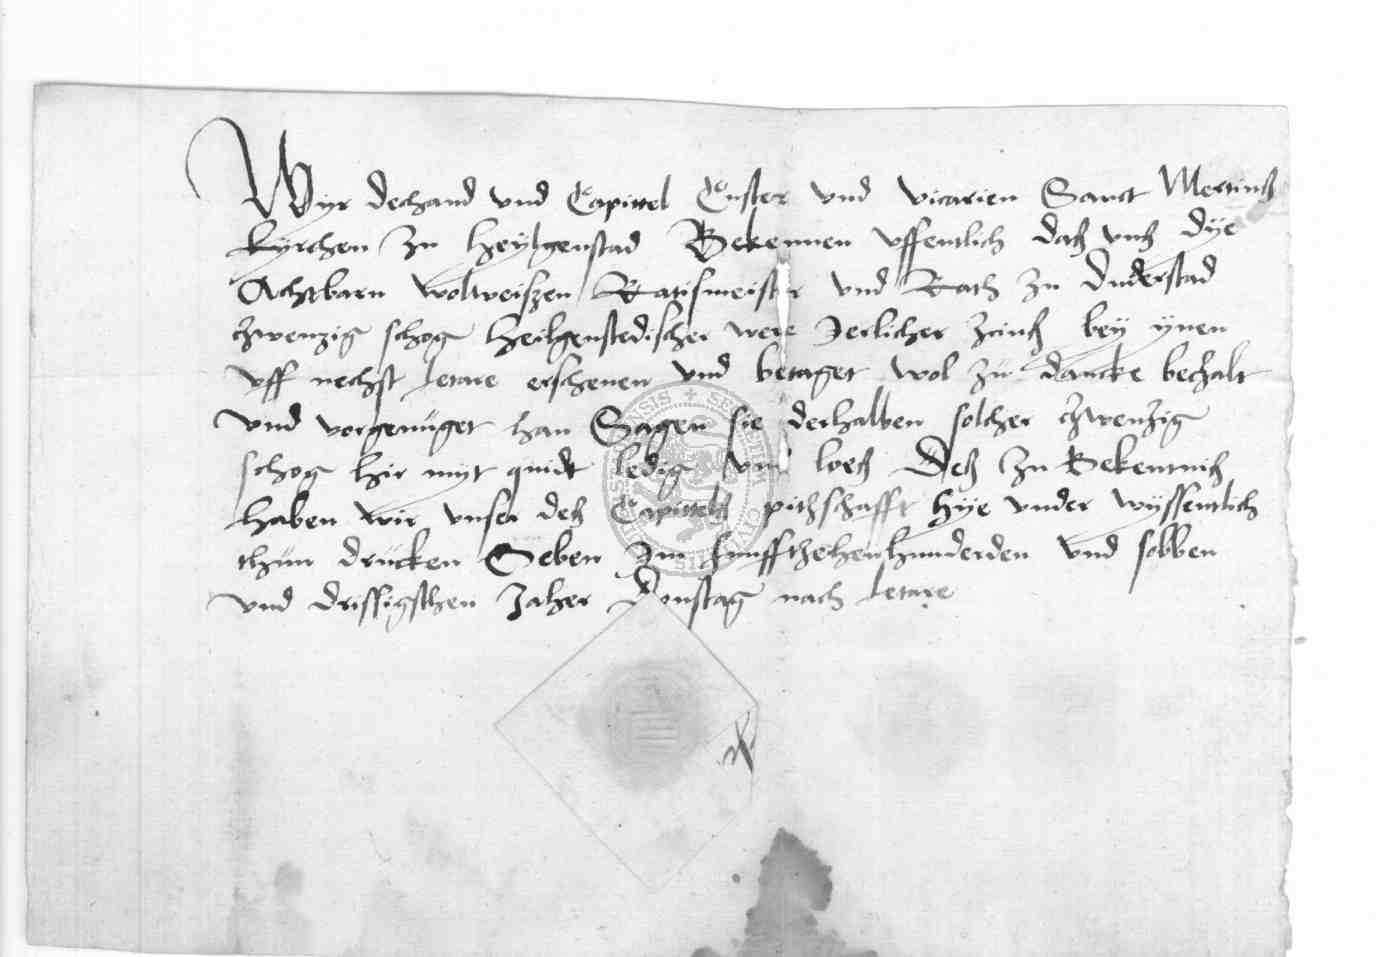 Wyr dechand vnd Capittel Custer vnd vicarien Sanct Mertinß
kyrchen zu heylgenstad Bekennen vffentlich daß vnß dye
Achtbarn wolweiszen Ratismeister vnd Rath zu Duderstad
czwenzig schog heilgenstedischer were Jerlicher zcinß bey ynen
vff nechst letare erschenen vnd betaget wol zu dancke beczalt
vnd vorgenuget han Sagen sie derhalben solcher czwenzig
schog hir myt quidt ledig vnd loeß Deß zu Bekentniß
haben wir vnser deß Capittelß pitzschafft hye vnder wyssentlich
thun drucken Geben Im funffczehenhunderden vnd sobben
vnd drissigsthen Jaher Donstag nach letare